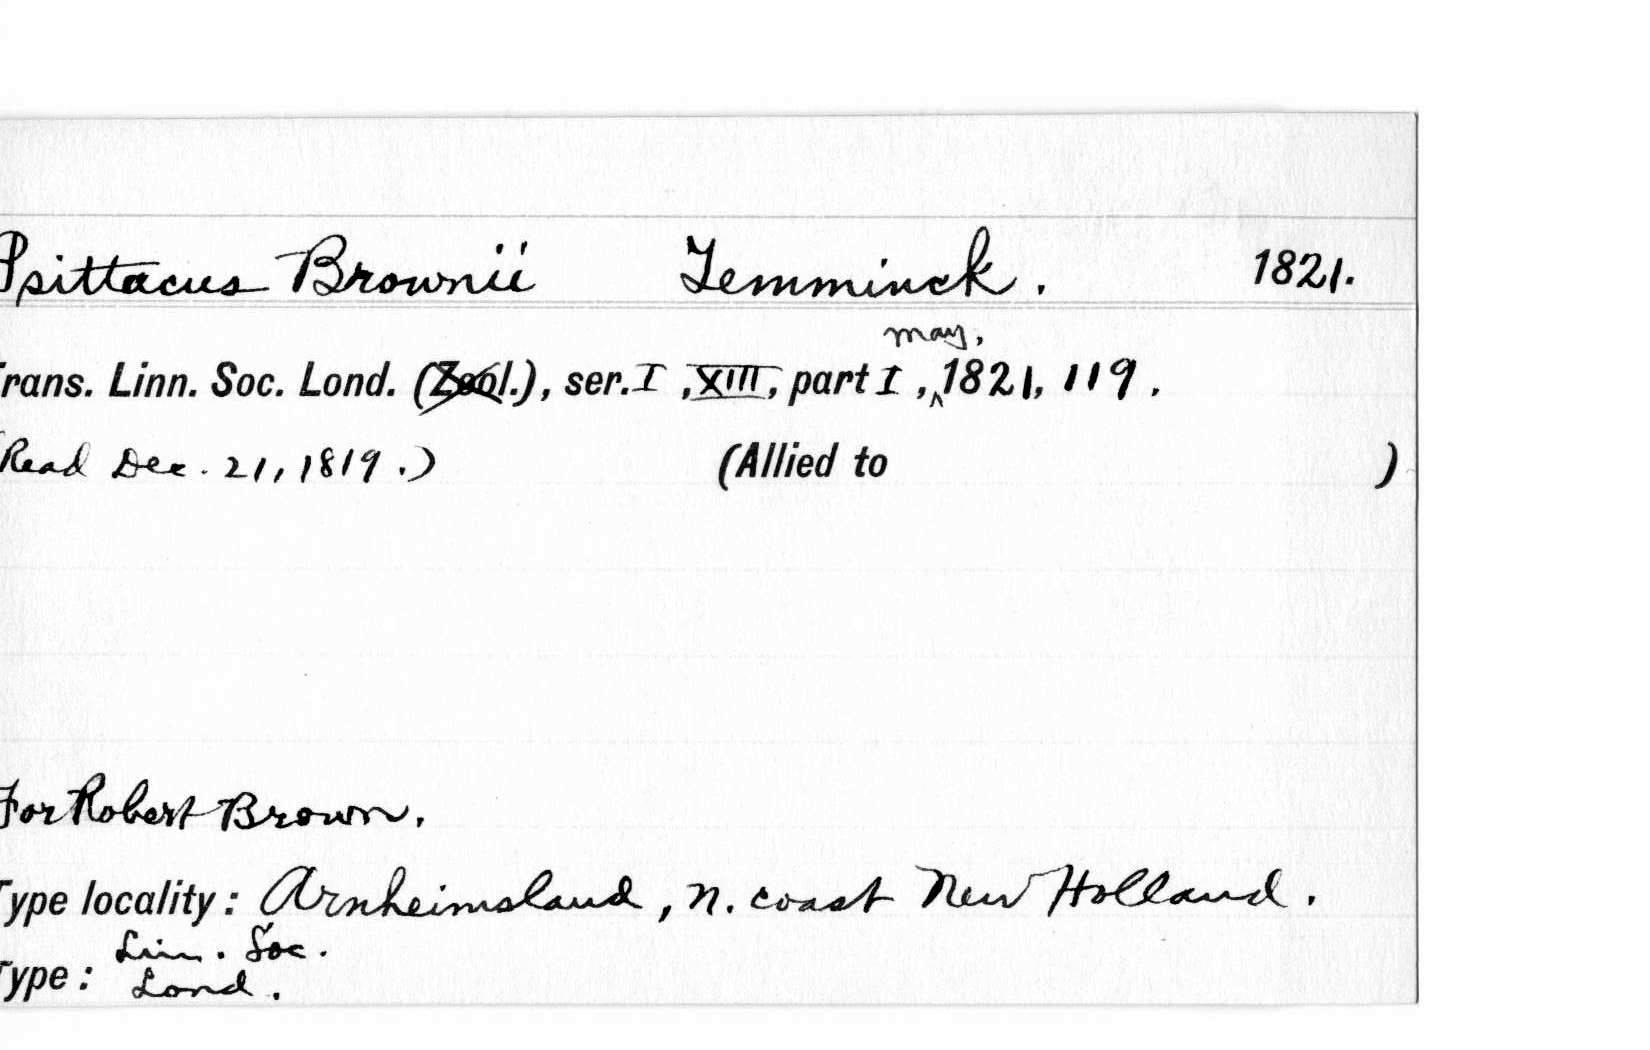 Psittacus Brownii Temminck. 1821.
May,
Trans. Linn. Soc. Lond. (Zool.), ser. I, XIII, part I, ^1821, 119.
(Read Dec. 21, 1819.) (Allied to )
For Robert Brown.
Type locality: Arnheimsland, n. coast New Holland.
Lin. Soc.
Type: Lond.